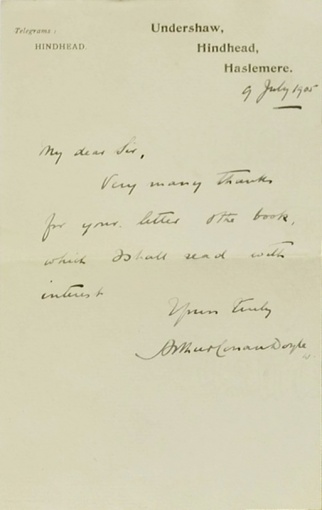 Telegrams:
HINDHEAD.
Undershaw,
Hindhead,
Haslemere.
9 July 1905
My dear Sir,
Very many thanks
for your letter & the book,
which I shall read with
interest
Yours truly
Arthur Conan Doyle